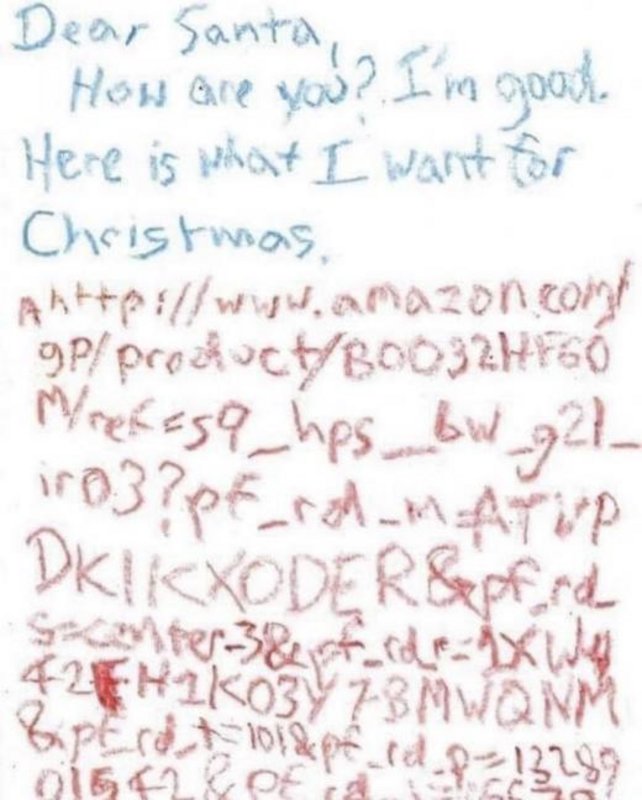 Dear Santa,
How are you? I'm good.
Here is what I want for
Christmas.
A http://www.amazon.com/
gp/product/B0032HF60
M/ref=s9_hps_bw_g21_
ir03?pf_rd_m=ATVP
DKIKX0DER&pf_rd_
s=center-3&pf_rd_r=1XWY
42FH1K03Y7BMWQNM
&pf_rd_t=101&pf_rd_p=13289
01542&pf_rd_